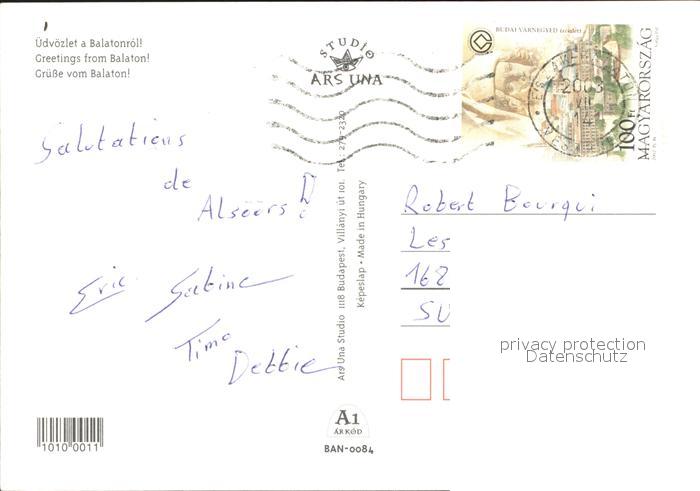 Üdvözlet a Balatonról!
Greetings from Balaton!
Grüße vom Balaton!
STUDIO
ARS UNA
BUDAI VÁRNEGYED
100Ft
MAGYARORSZÁG
2003
VII
14
Salutations
de
Alsóörs!
Eric Sabine
Timo
Debbie
Ars Una Studio 1118 Budapest, Villányi út 101. Tel.: 279-2320
Képeslap • Made in Hungary
Robert Bourqui
Les
162
SU
privacy protection
Datenschutz
1010 0011
A1
ÁRKÓD
BAN-0084